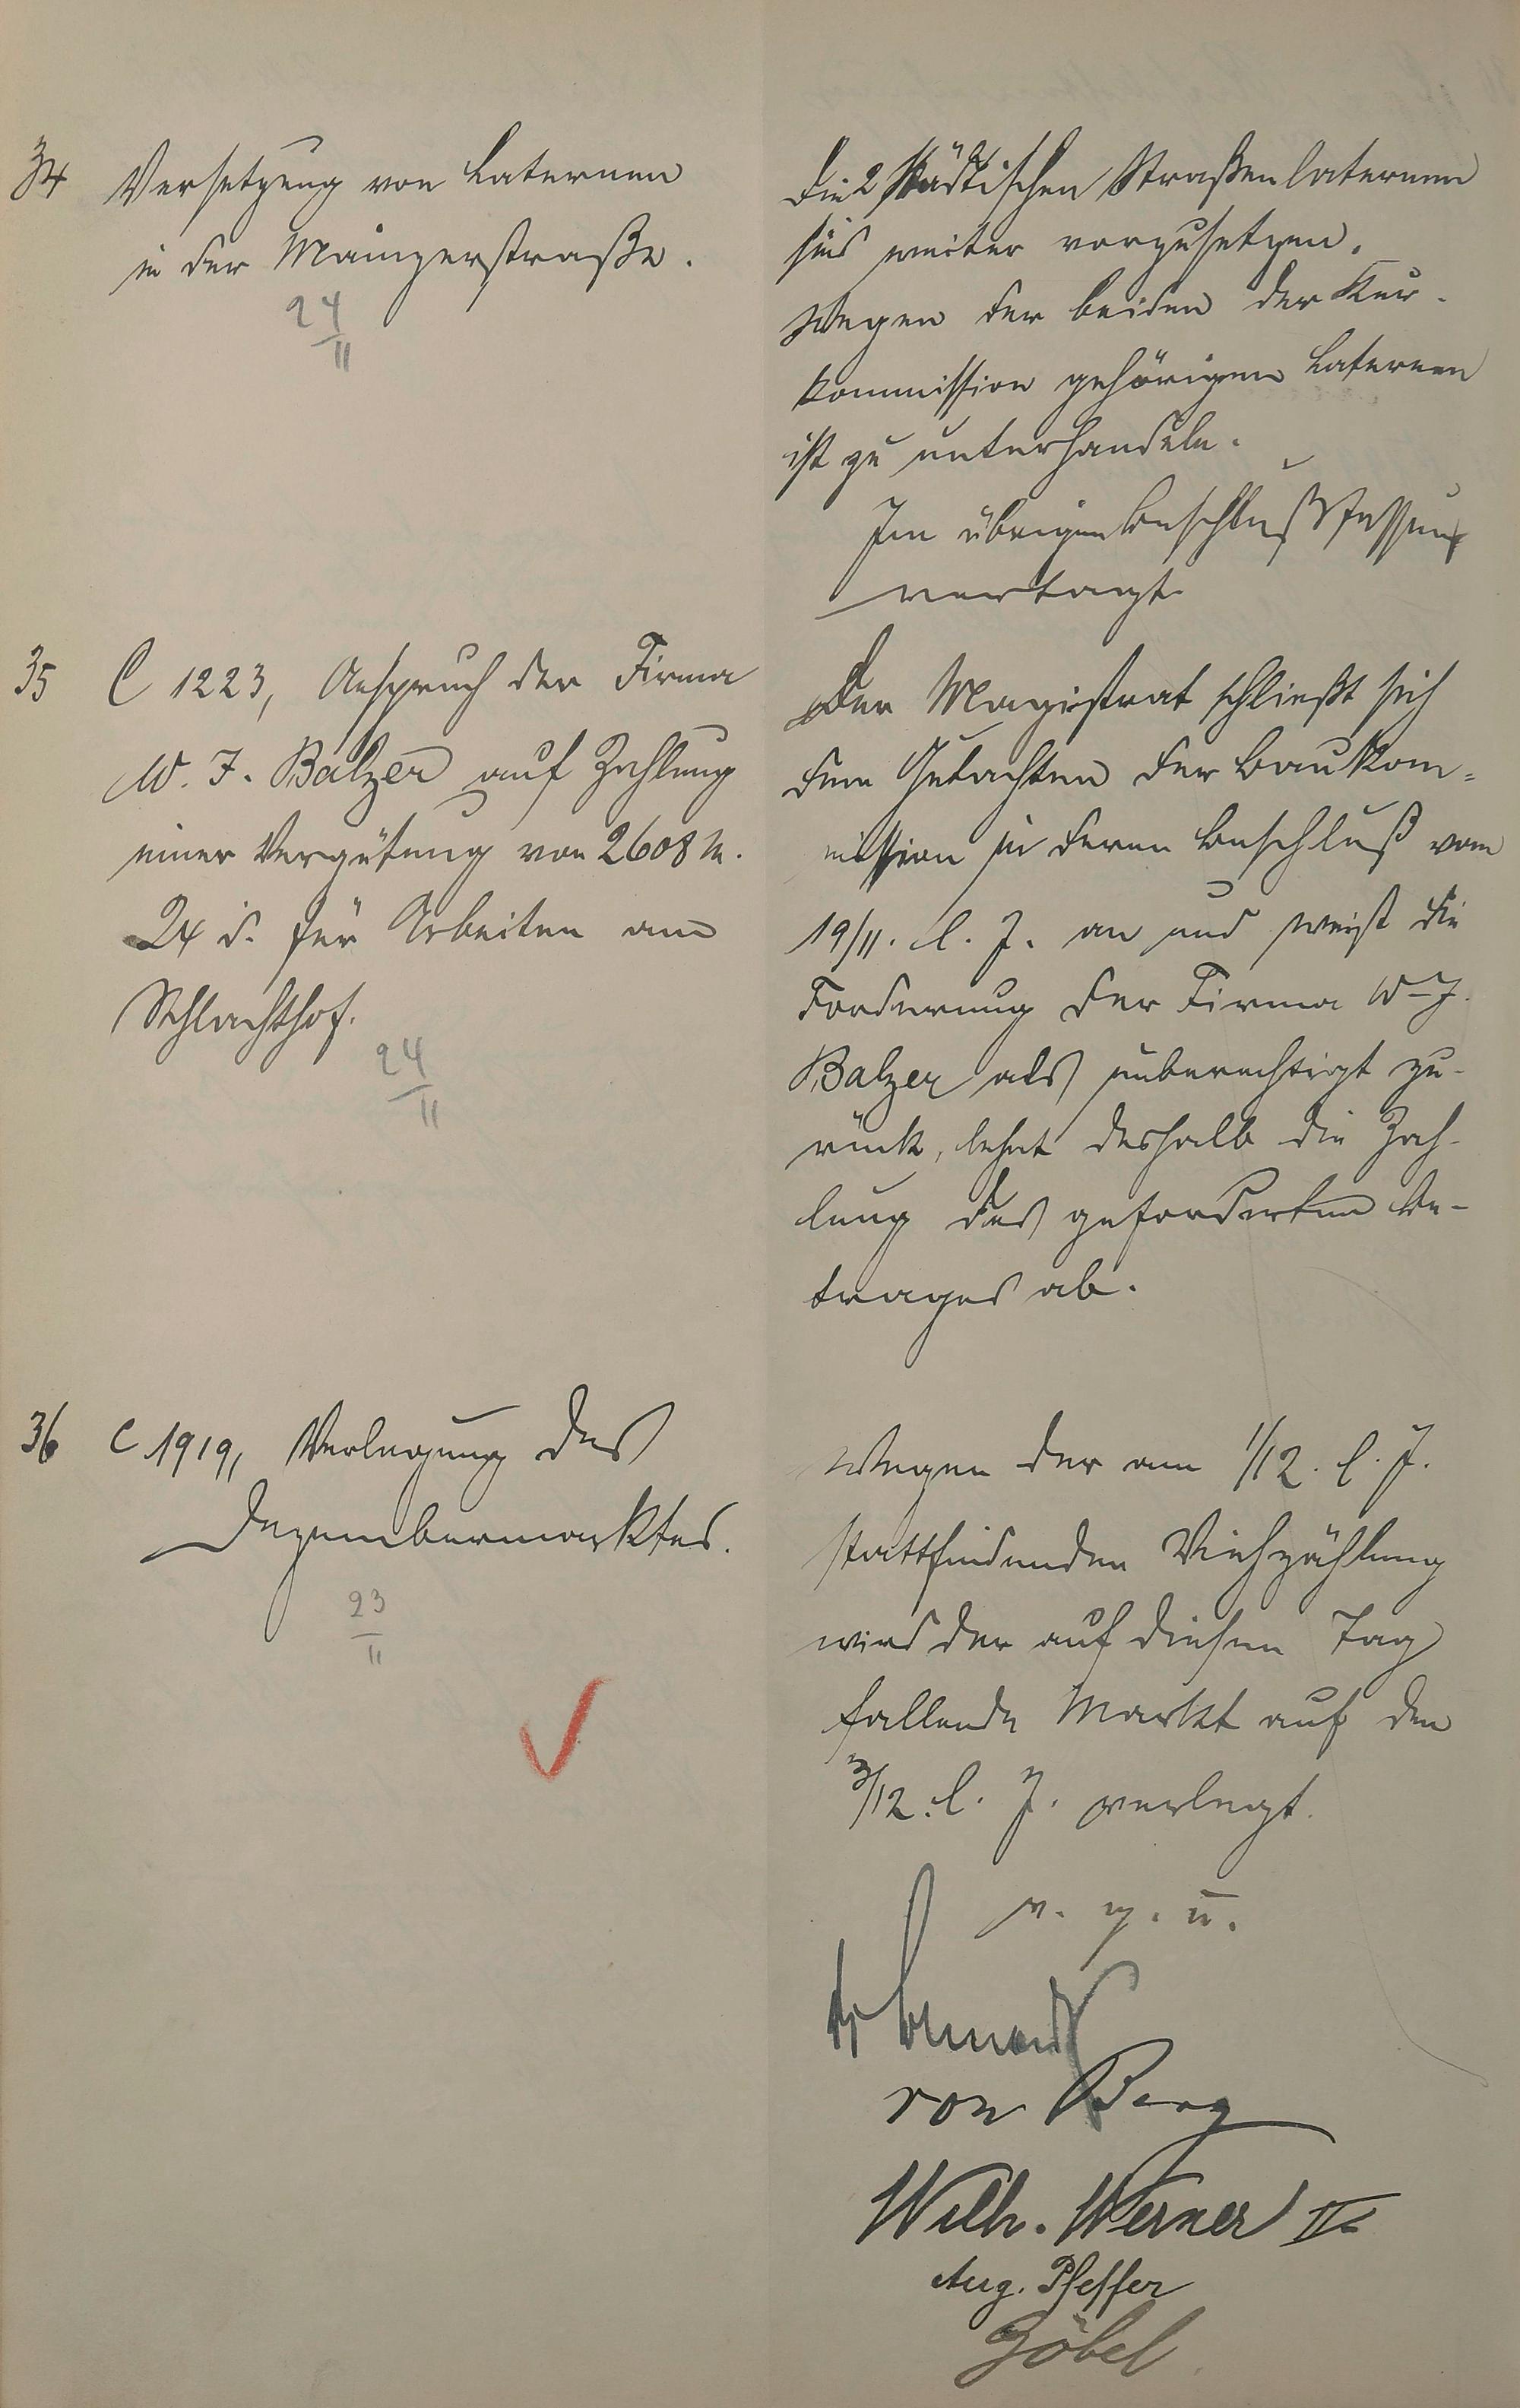 34 Versetzung von Laternen
in der Mainzerstraße.
24
11
Die 2 städtischen Straßenlaternen
sind weiter vorzusetzen.
Wegen der beiden der Kur-
kommission gehörigen Laternen
ist zu unterhandeln.
Im übrigen Beschlußfassung
vertagt.
35 C 1223, Anspruch der Firma
W. J. Balzer auf Zahlung
einer Vergütung von 2608 M.
24 d. für Arbeiten am
Schlachthof.
24
11
Der Magistrat schließt sich
dem Gutachten der Baukom-
mission in deren Beschluß vom
19/11. l. J. an und weist die
Forderung der Firma W. J.
Balzer als unberechtigt zu-
rück, lehnt deshalb die Zah-
lung des geforderten Be-
trages ab.
36 C 1919, Verlegung des
Dezembermarktes.
23
11
Wegen der am 1/12. l. J.
stattfindenden Viehzählung
wird der auf diesen Tag
fallende Markt auf den
3/12. l. J. verlegt.
v. g. u.
von Berg
Wilh. Werner II
Aug. Pfeffer
Göbel